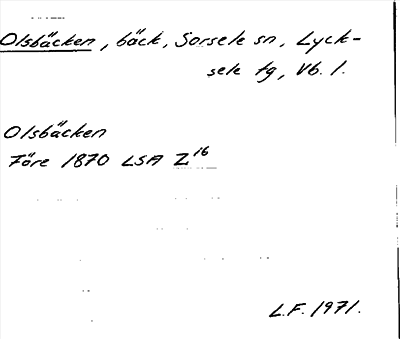 Olsbäcken, bäck, Sorsele sn, Lyck-
sele tg, Vb. l.
Olsbäcken
Före 1870 LSA Z16
L.F. 1971.